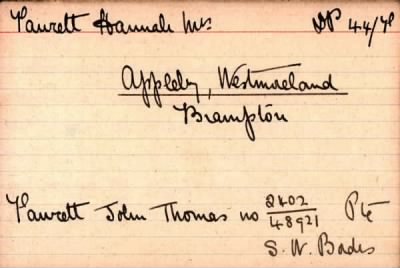 Fawcett Hannah Mrs DP 44/78
Appleby, Westmoreland
Brampton
Fawcett John Thomas no 8402/48921 Pte
S. W. Bords